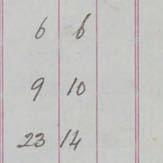 6 6
9 10
23 14